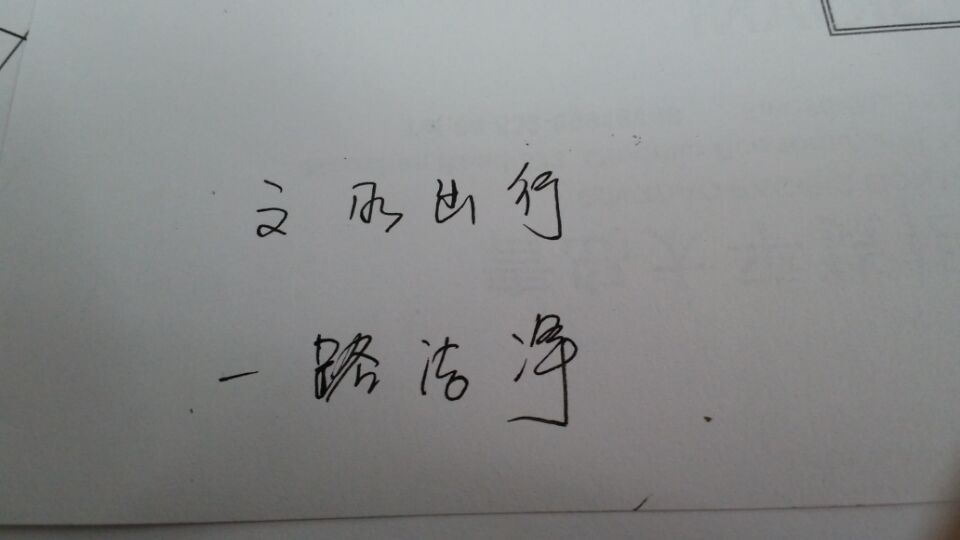 文明出行
一路洁净